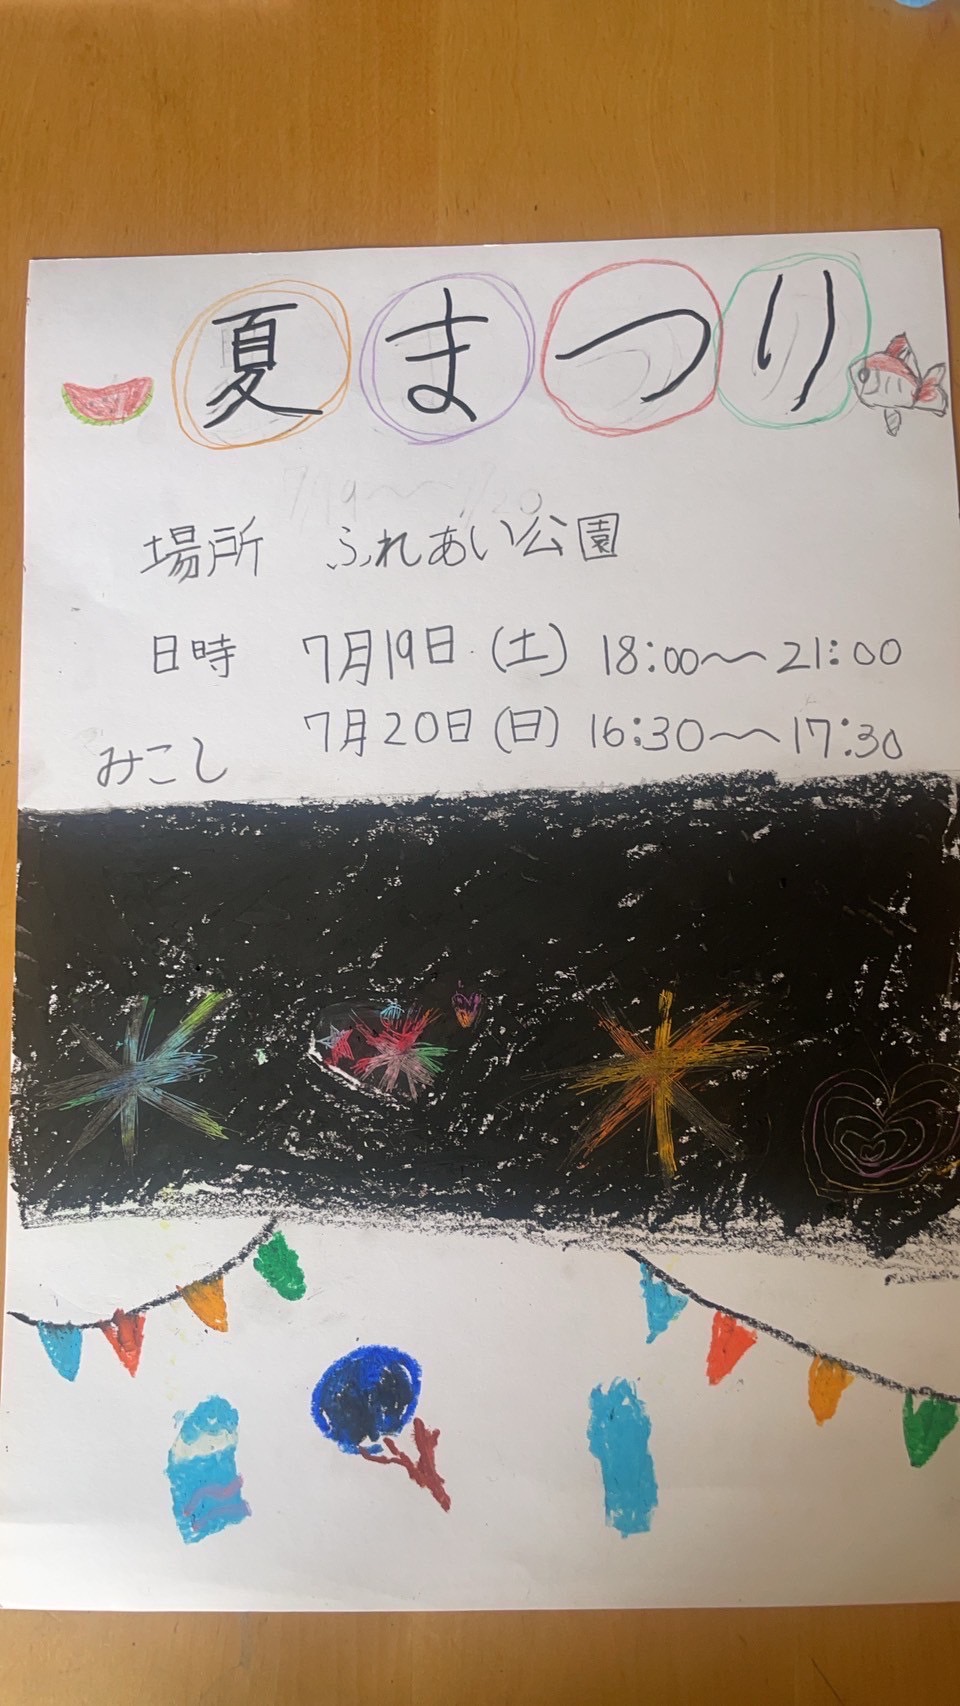 夏まつり
7/19〜7/20
場所 ふれあい公園
日時 7月19日(土) 18:00〜21:00
7月20日(日) 16:30〜17:30
みこし